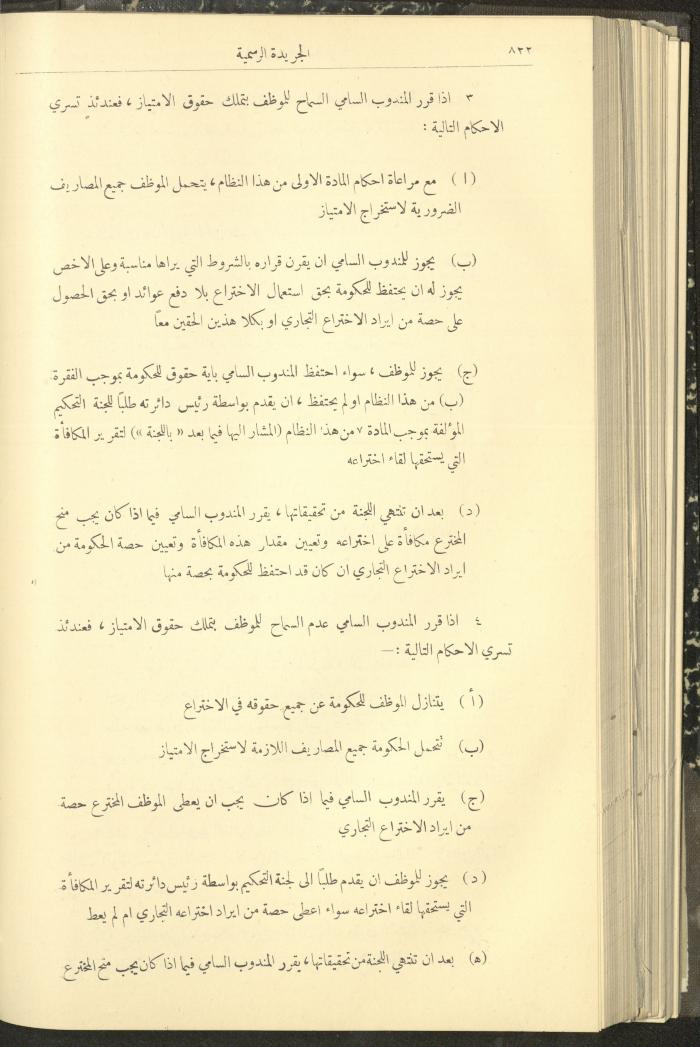 ٨٢٢
الجريدة الرسمية
٣ اذا قرر المندوب السامي السماح للموظف بتملك حقوق الامتياز، فعندئذ تسري
الاحكام التالية :
(ا) مع مراعاة احكام المادة الاولى من هذا النظام، يتحمل الموظف جميع المصاريف
الضرورية لاستخراج الامتياز
(ب) يجوز للمندوب السامي ان يقرن قراره بالشروط التي يراها مناسبة وعلى الاخص
يجوز له ان يحتفظ للحكومة بحق استعمال الاختراع بلا دفع عوائد او بحق الحصول
على حصة من ايراد الاختراع التجاري او بكلا هذين الحقين معًا
(ج) يجوز للموظف، سواء احتفظ المندوب السامي باية حقوق للحكومة بموجب الفقرة
(ب) من هذا النظام او لم يحتفظ، ان يقدم بواسطة رئيس دائرته طلبًا للجنة التحكيم
المؤلفة بموجب المادة ٧ من هذا النظام (المشار اليها فيما بعد «باللجنة») لتقرير المكافأة
التي يستحقها لقاء اختراعه
(د) بعد ان تنتهي اللجنة من تحقيقاتها، يقرر المندوب السامي فيما اذا كان يجب منح
المخترع مكافأة على اختراعه وتعيين مقدار هذه المكافأة وتعيين حصة الحكومة من
ايراد الاختراع التجاري ان كان قد احتفظ للحكومة بحصة منها
٤ اذا قرر المندوب السامي عدم السماح للموظف بتملك حقوق الامتياز، فعندئذ
تسري الاحكام التالية :—
(أ) يتنازل الموظف للحكومة عن جميع حقوقه في الاختراع
(ب) تتحمل الحكومة جميع المصاريف اللازمة لاستخراج الامتياز
(ج) يقرر المندوب السامي فيما اذا كان يجب ان يعطى الموظف المخترع حصة
من ايراد الاختراع التجاري
(د) يجوز للموظف ان يقدم طلبًا الى لجنة التحكيم بواسطة رئيس دائرته لتقرير المكافأة
التي يستحقها لقاء اختراعه سواء اعطى حصة من ايراد اختراعه التجاري ام لم يعط
(ه) بعد ان تنتهي اللجنة من تحقيقاتها، يقرر المندوب السامي فيما اذا كان يجب منح المخترع